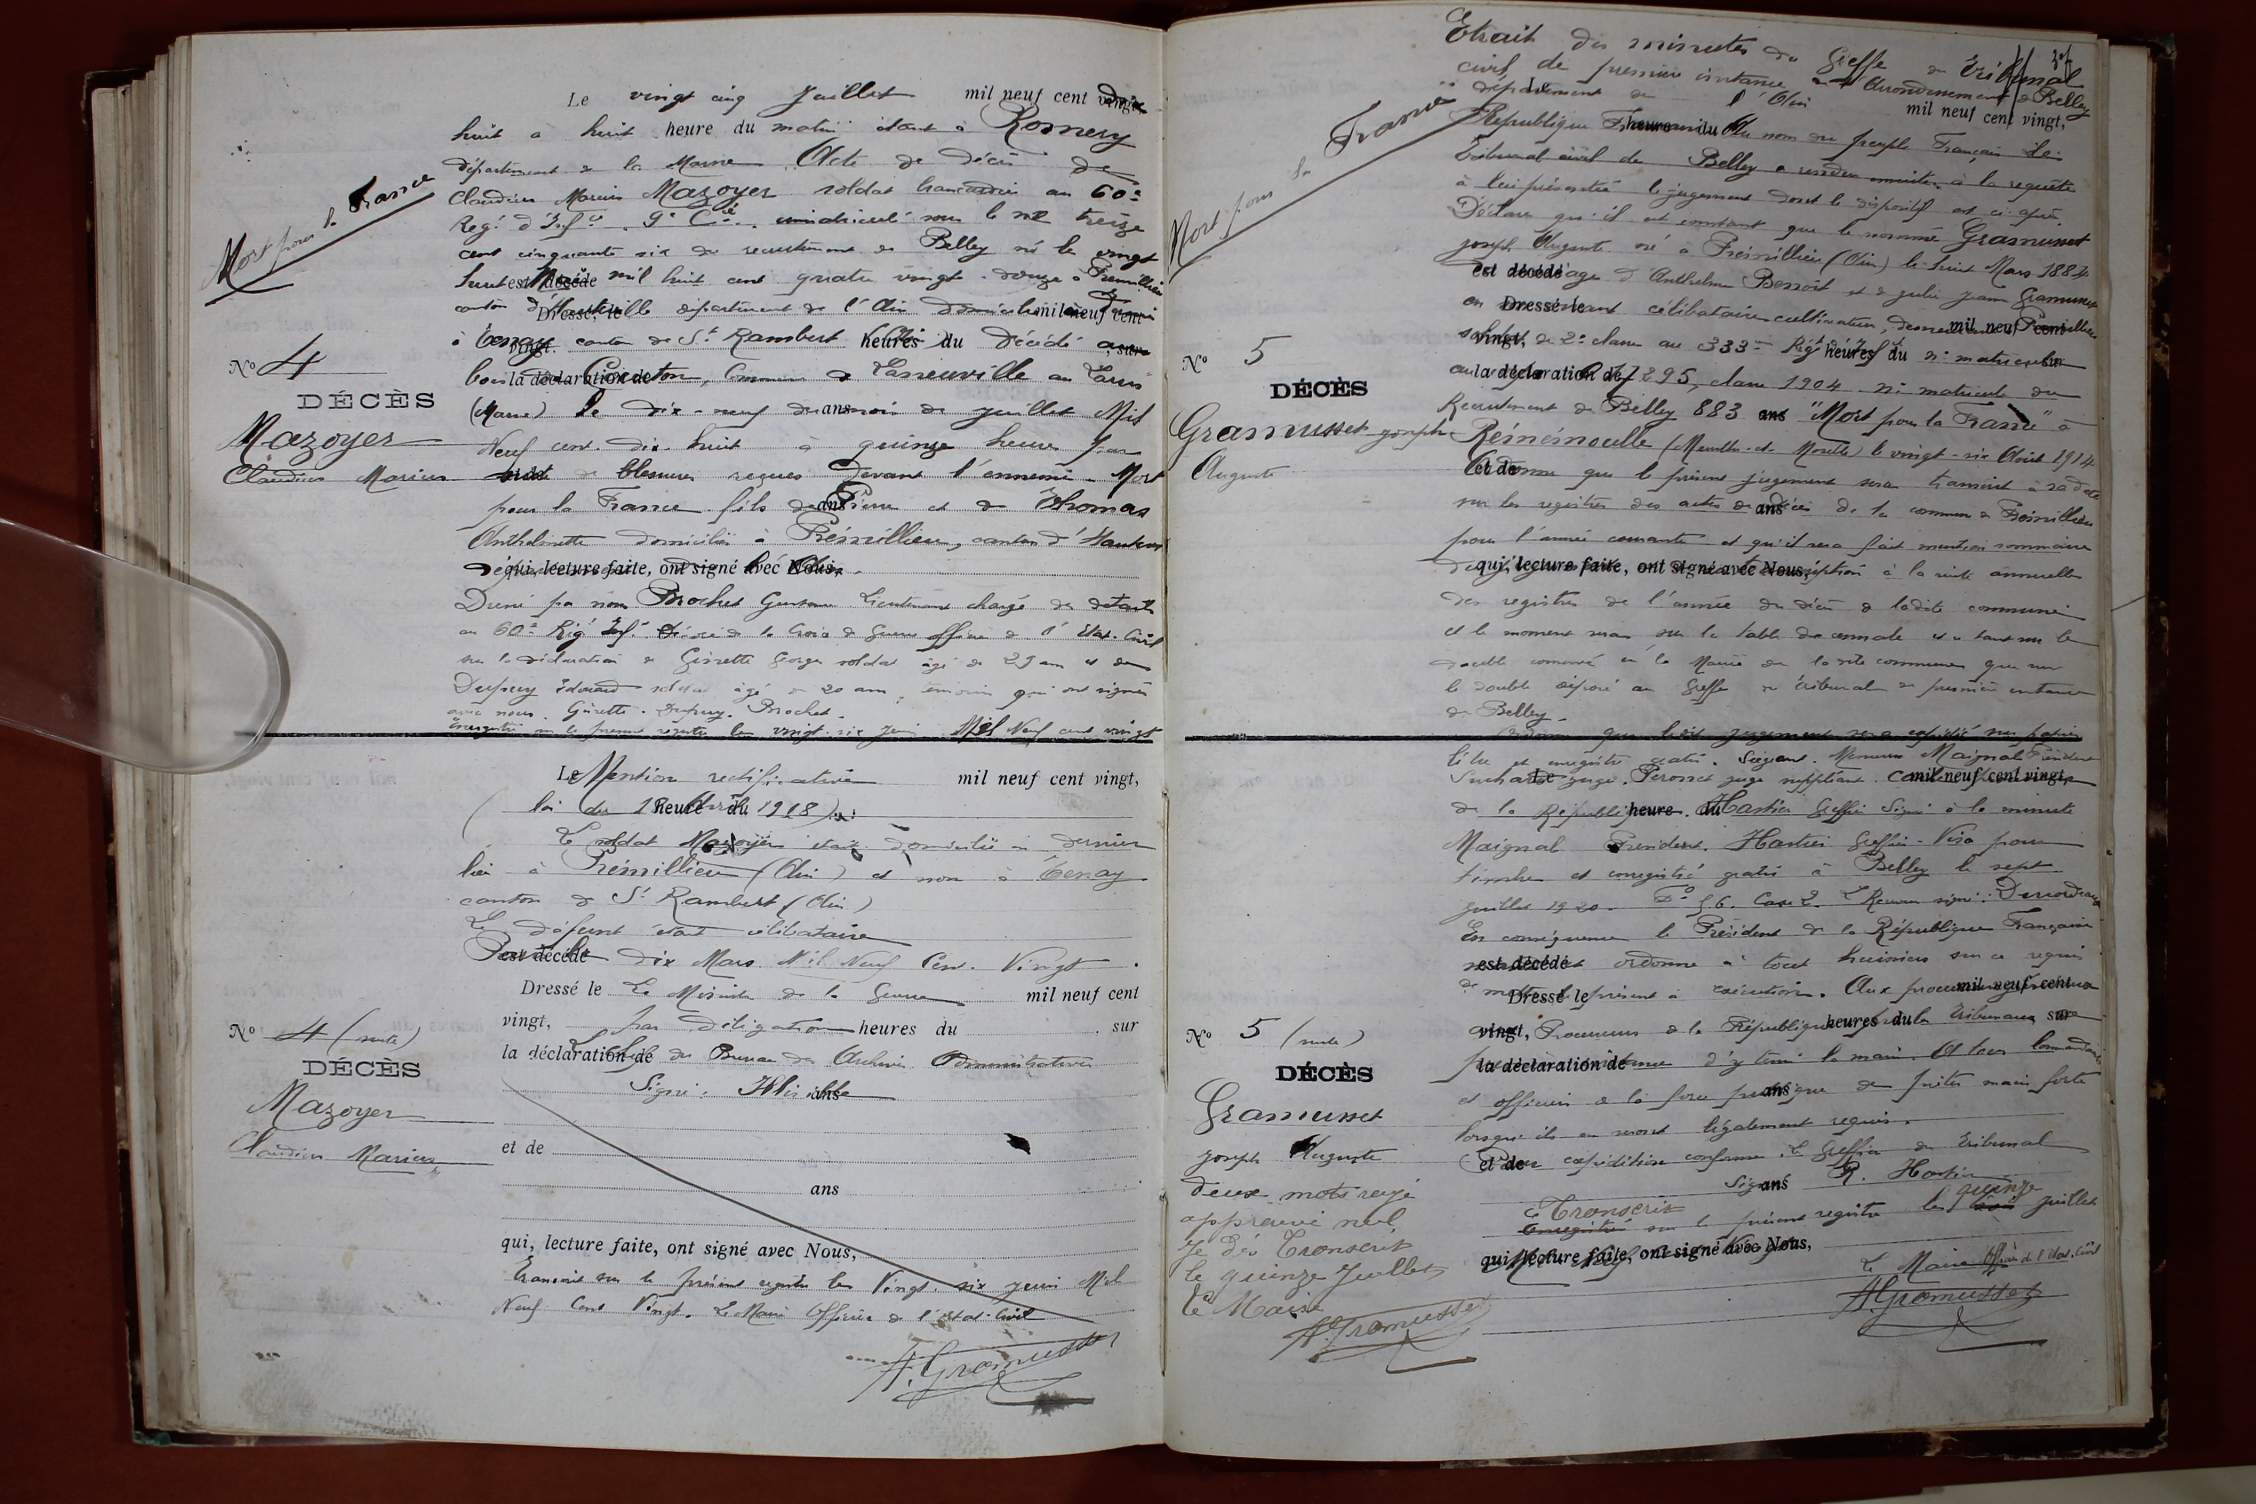 Mort pour la France
Le vingt cinq Juillet mil neuf cent dix
huit à huit heure du matin étant à Romery
département de la Marne Acte de décès de
Claudius Marius Mazoyer soldat brancardier au 60e
Reg.t d'Inf.ie 9e C.ie immatriculé sous le n° treize
cent cinquante six du recrutement de Belley né le vingt
huit mil huit cent quatre vingt douze à Prémillieu
canton d'Hauteville département de l'Ain domicilié
à Tenay canton de St Rambert Décédé au
bois de Courton, Commune de Laneuville au Larris
(Marne) le dix-neuf du mois de juillet Mil
Neuf cent dix-huit à quinze heures par
suite de blessures reçues devant l'ennemi. Mort
pour la France fils de Pierre et de Thomas
Anthelmette domiciliés à Prémillieu, canton d'Hauteville
qui, lecture faite, ont signé avec Nous,
Dressé par nous Brochet Lieutenant chargé des détails
au 60e Rég.t Inf.ie Décoré de la Croix de Guerre officier de l'Etat-Civil
sur la déclaration de Girette Georges soldat âgé de 29 ans et de
Dupuy Edouard soldat âgé de 20 ans, témoins qui ont signés
avec nous. Girette. Dupuy. Brochet.
Enregistré sur le présent registre le vingt-six juin Mil Neuf cent vingt
N° 4
DÉCÈS
Mazoyer
Claudius Marius
Le Mention rectificative mil neuf cent vingt,
(loi du 18 heure du 1918)
Le soldat Mazoyer était domicilié en dernier
lieu à Prémillieu (Ain) et non à Tenay
canton de St Rambert (Ain)
Le défunt était célibataire
est décédé dix Mars Mil Neuf Cent Vingt.
Dressé le Le Ministre de la Guerre mil neuf cent
vingt, par Délégation heures du sur
la déclaration de du Bureau des Archives Administratives
Signé: ans
et de
ans
qui, lecture faite, ont signé avec Nous,
Transcrit sur le présent registre le Vingt-six juin Mil
Neuf Cent Vingt. Le Maire Officier de l'état-civil
A. Gramusset
N° 4 (suite)
DÉCÈS
Mazoyer
Claudius Marius
Mort pour la France
Extrait des minutes du Greffe du tribunal
civil de première instance de l'Arrondissement de Belley
département de l'Ain
mil neuf cent vingt,
République Française Au nom du peuple Français le
Tribunal civil de Belley a rendu ensuite à la requête
à lui présentée le jugement dont le dispositif est ci-après
Déclare qu'il est constant que le nommé Gramusset
Joseph Auguste né à Prémillieu (Ain) le huit Mars 1884
d'Anthelme Benoit et de Julie Jeanne Gramusset
célibataire cultivateur, demeurant Prémillieu
soldat de 2e classe au 333e Rég.t d'Inf.ie n° matricule
au 295, classe 1904 n° matricule du
Recrutement de Belley 883 "Mort pour la France" à
Réménoville (Meurthe-et-Moselle) le vingt-six Août 1914
Ordonne que le présent jugement sera transcrit à sa date
sur les registres des actes de décès de la commune de Prémillieu
pour l'année courante et qu'il sera fait mention sommaire
qui, lecture faite, ont signé avec Nous,
des registres de l'année du décès de ladite commune
et le moment sur la table décennale et tant sur le
double conservé en la Mairie de la dite commune que sur
le double déposé au Greffe du tribunal de première instance
de Belley.
Ordonne que ledit jugement sera expédié sur papier
libre et enregistré gratis. Siégeant Messieurs Maignal Président
Suchard juge. Peronnet juge suppléant.
de la République. Hartier Greffier Signé à la minute
Maignal Président. Hartier Greffier. Visa pour
timbre et enregistré gratis à Belley le sept
Juillet 1920. F° 56. Case 2. Le Receveur signé:
En conséquence le Président de la République Française
ordonne à tout huissiers sur ce requis
de mettre le présent à exécution. Aux procureurs généraux
Procureurs de la République les Tribunaux
d'y tenir la main. A tous Commandants
et officiers de la force publique de prêter main forte
lorsqu'ils en seront légalement requis.
Pour expédition conforme. Le Greffier du tribunal
Signé R. Hartier
Transcrit quinze
Enregistré sur le présent registre le trois juillet
Mil Neuf Cent Vingt
Le Maire Officier de l'état-civil
A. Gramusset
N° 5
DÉCÈS
Gramusset Joseph
Auguste
N° 5 (suite)
DÉCÈS
Gramusset
Joseph Auguste
deux mots rayé
approuvé nul.
Je dis Transcrit
le quinze Juillet
Le Maire
A. Gramusset